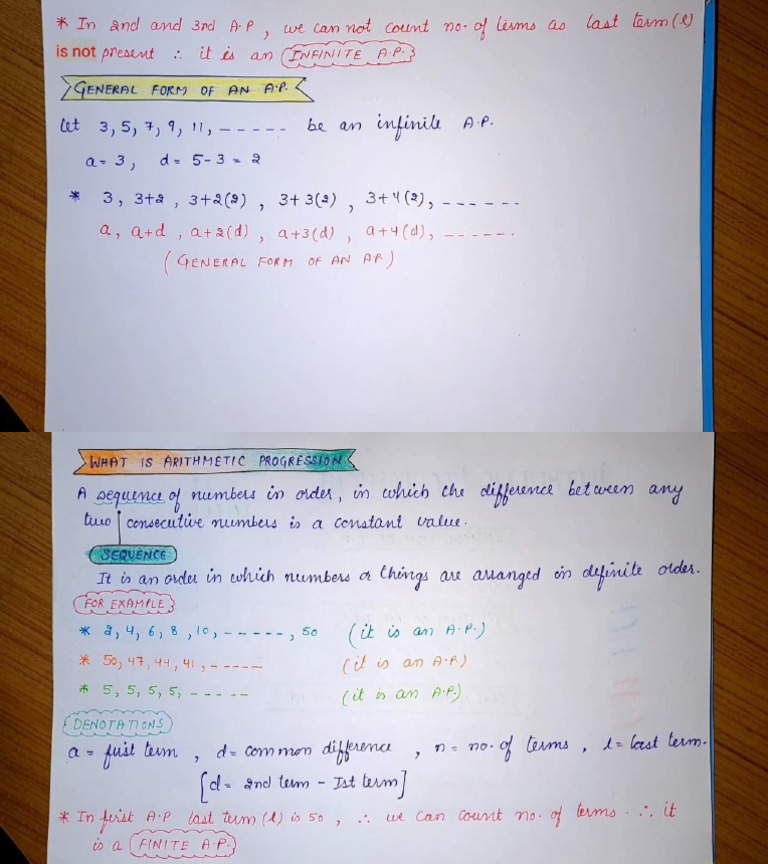 * In 2nd and 3rd A.P, we can not count no. of terms as last term (l)
is not present ∴ it is an INFINITE A.P.
GENERAL FORM OF AN A.P.
Let 3, 5, 7, 9, 11, ----- be an infinite A.P.
a = 3, d = 5-3 = 2
* 3, 3+2, 3+2(2), 3+3(2), 3+4(2), ------
a, a+d, a+2(d), a+3(d), a+4(d), ------
(GENERAL FORM OF AN A.P.)
WHAT IS ARITHMETIC PROGRESSION
A sequence of numbers in order, in which the difference between any
two consecutive numbers is a constant value.
SEQUENCE
It is an order in which numbers or things are arranged in definite order.
FOR EXAMPLE
* 2, 4, 6, 8, 10, ------, 50 (it is an A.P.)
* 50, 47, 44, 41, ----- (it is an A.P.)
* 5, 5, 5, 5, ----- (it is an A.P.)
DENOTATIONS
a = first term, d = common difference, n = no. of terms, l = last term.
[d = 2nd term - Ist term]
* In first A.P last term (l) is 50, ∴ we can count no. of terms. ∴ it
is a FINITE A.P.